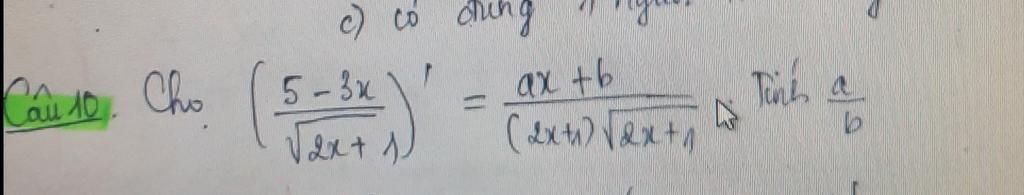 c) có chung
Câu 10. Cho (5 - 3x / √2x + 1)' = ax + b / (2x+1)√2x+1. Tính a/b